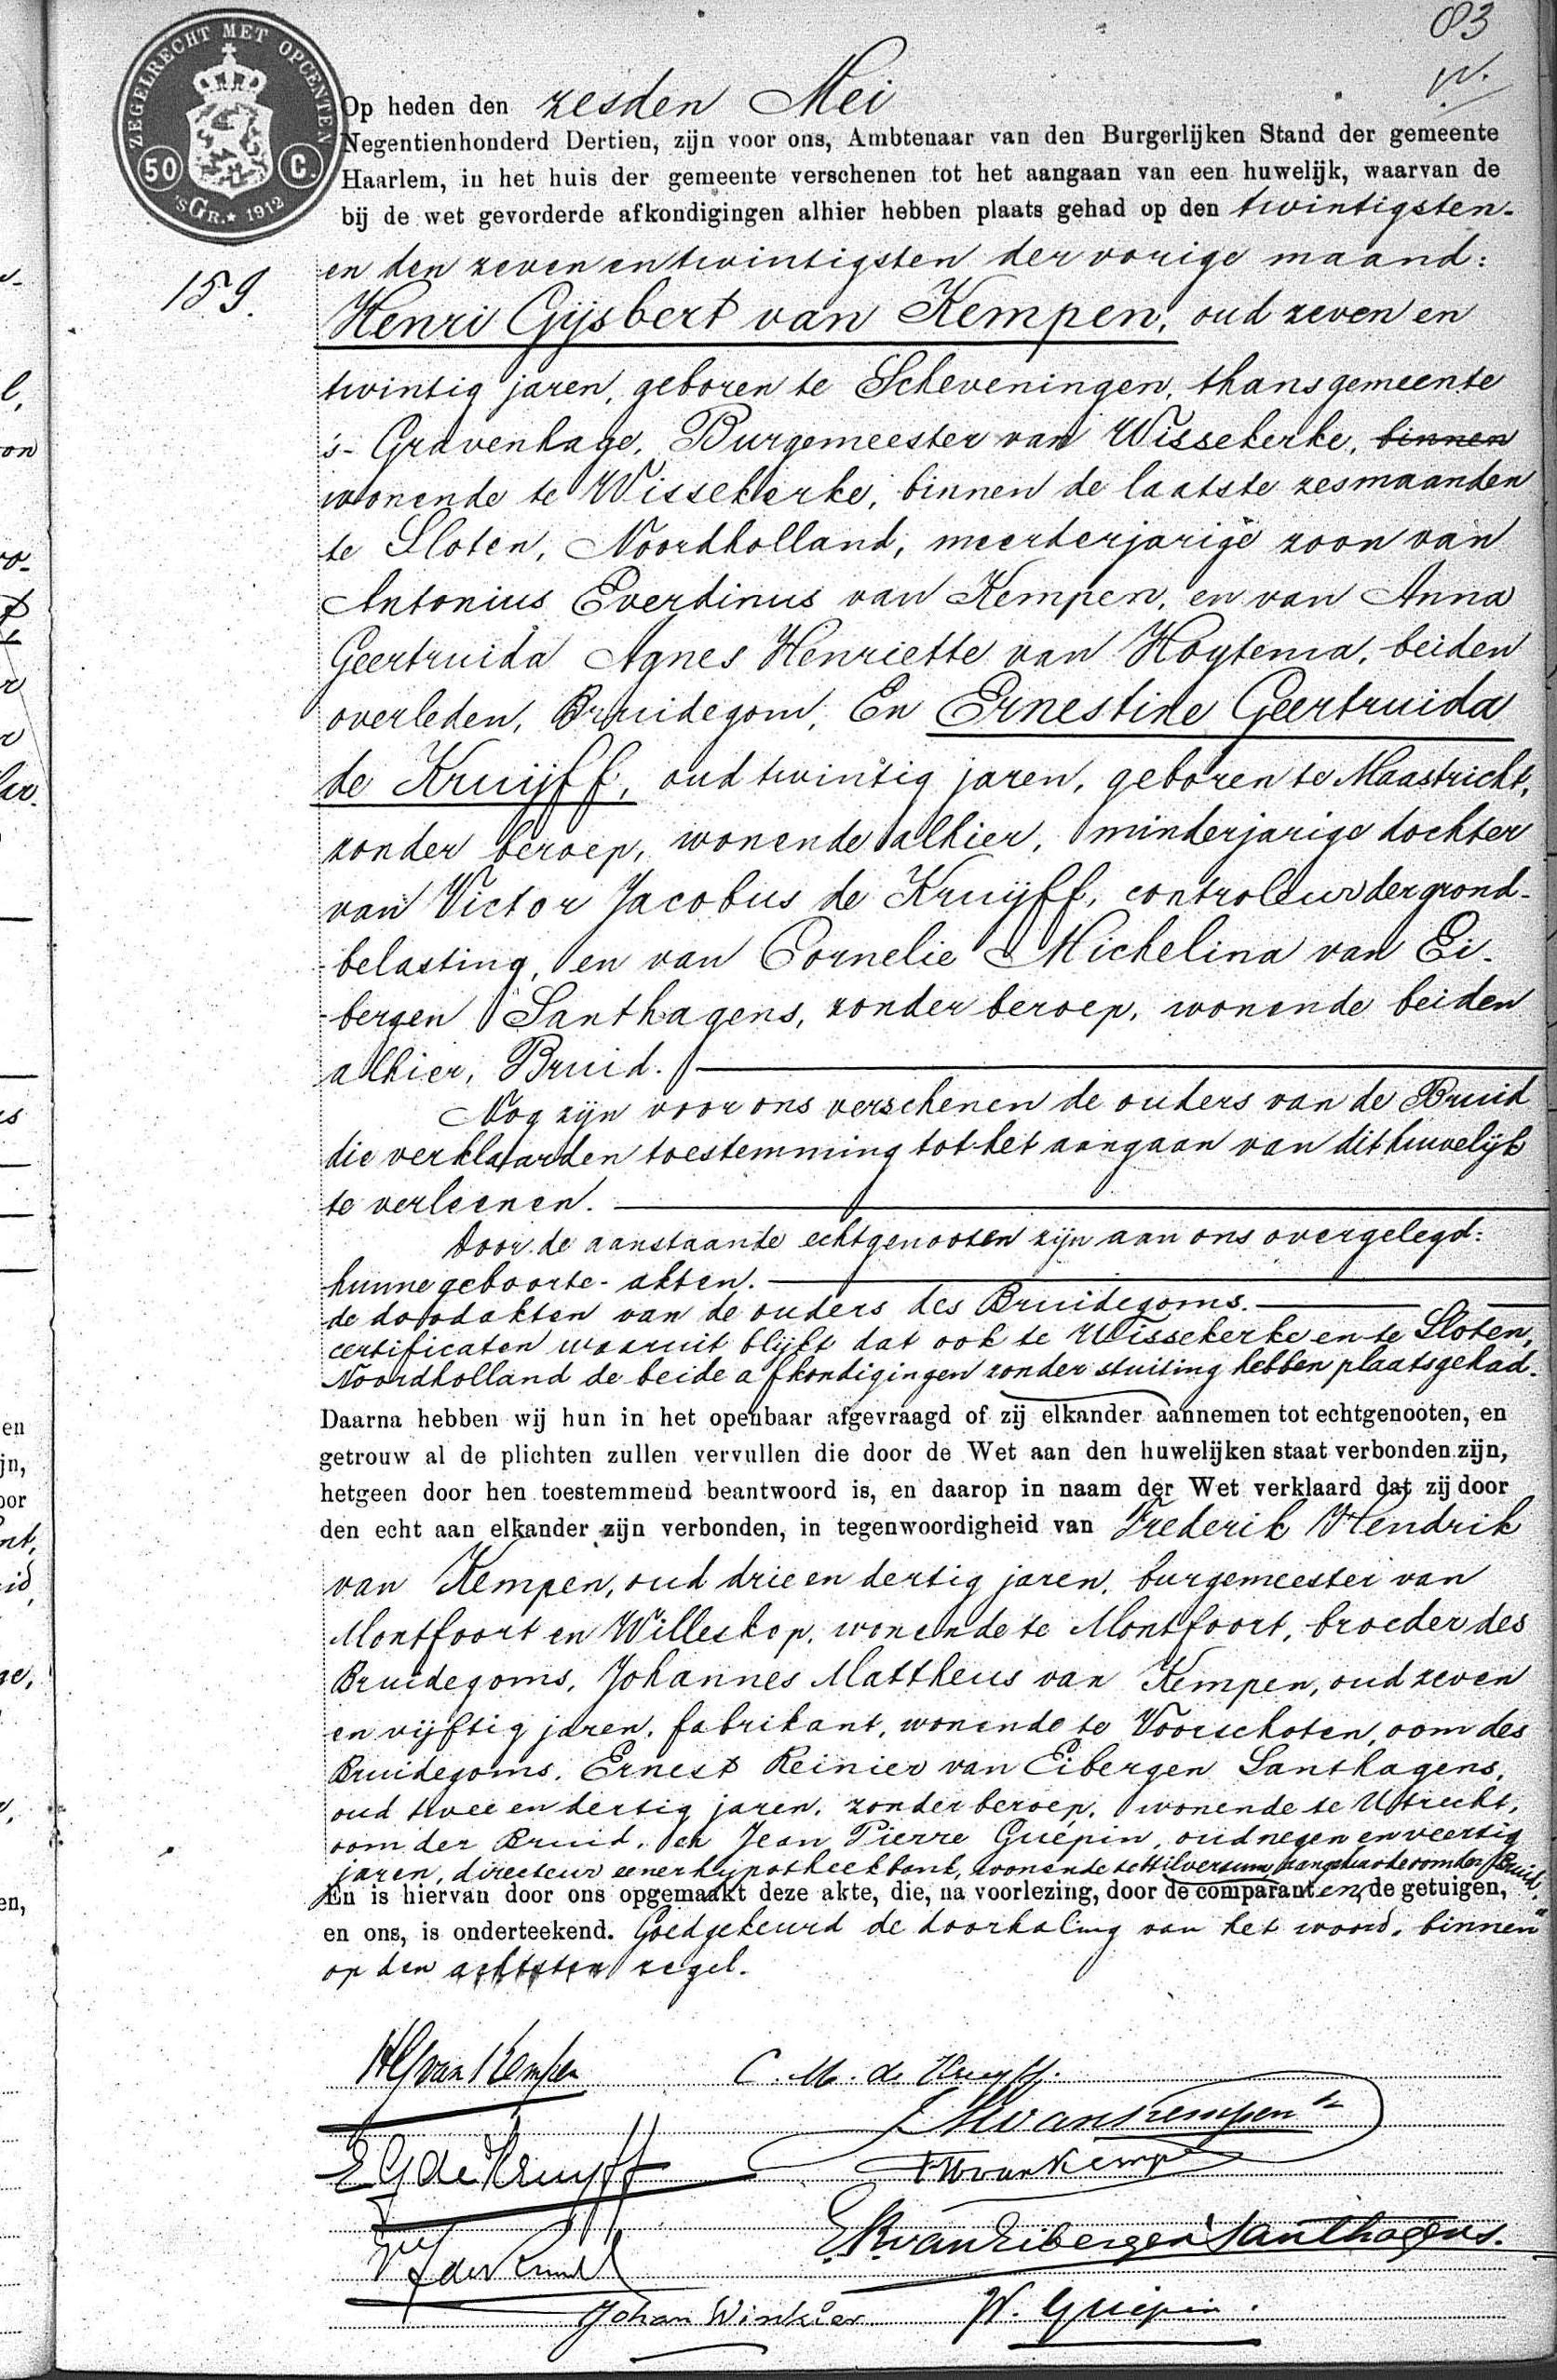 83
W.
ZEGELRECHT MET OPCENTEN
50 C.
'SGR. * 1912
Op heden den zesden Mei
Negentienhonderd Dertien, zijn voor ons, Ambtenaar van den Burgerlijken Stand der gemeente
Haarlem, in het huis der gemeente verschenen tot het aangaan van een huwelijk, waarvan de
bij de wet gevorderde afkondigingen alhier hebben plaats gehad op den twintigsten-
159.
en den zeven en twintigsten der vorige maand:
Henri Gijsbert van Kempen, oud zeven en
twintig jaren, geboren te Scheveningen, thans gemeente
's-Gravenhage, Burgemeester van Wissekerke, binnen
wonende te Wissekerke, binnen de laatste zes maanden
te Sloten, Noordholland, meerderjarige zoon van
Antonius Everdinus van Kempen, en van Anna
Geertruida Agnes Henriette van Hoytema, beiden
overleden, Bruidegom, En Ernestine Geertruida
de Kruijff, oud twintig jaren, geboren te Maastricht,
zonder beroep, wonende alhier, minderjarige dochter
van Victor Jacobus de Kruijff, controleur der grond-
-belasting, en van Cornelie Michelina van Ei-
-bergen Santhagens, zonder beroep, wonende beiden
alhier, Bruid.
Nog zijn voor ons verschenen de ouders van de Bruid
die verklaarden toestemming tot het aangaan van dit huwelijk
te verleenen.
Door de aanstaande echtgenooten zijn aan ons overgelegd:
hunne geboorte-akten.
de doodakten van de ouders des Bruidegoms.
certificaten waaruit blijkt dat ook te Wissekerke en te Sloten,
Noordholland de beide afkondigingen zonder stuiting hebben plaatsgehad.
Daarna hebben wij hun in het openbaar afgevraagd of zij elkander aannemen tot echtgenooten, en
getrouw al de plichten zullen vervullen die door de Wet aan den huwelijken staat verbonden zijn,
hetgeen door hen toestemmend beantwoord is, en daarop in naam der Wet verklaard dat zij door
den echt aan elkander zijn verbonden, in tegenwoordigheid van Frederik Hendrik
van Kempen, oud drie en dertig jaren, burgemeester van
Montfoort en Willeskop, wonende te Montfoort, broeder des
Bruidegoms, Johannes Mattheus van Kempen, oud zeven
en vijftig jaren, fabrikant, wonende te Voorschoten, oom des
Bruidegoms, Ernest Reinier van Eibergen Santhagens,
oud twee en dertig jaren, zonder beroep, wonende te Utrecht,
oom der Bruid, en Jean Pierre Guépin, oud negen en veertig
jaren, directeur eener hypotheekbank, wonende te Hilversum, aangehuwde oom der Bruid.
En is hiervan door ons opgemaakt deze akte, die, na voorlezing, door de comparanten, de getuigen,
en ons, is onderteekend. Goedgekeurd de doorhaling van het woord „binnen"
op den achtsten regel.
HG van Kempen
C. M. de Kruyff.
JM van Kempen
EG de Kruyff
FH van Kempen
VJ de Kruyff
E.R. van Eibergen Santhagens.
Johan Winkler
Guépin.